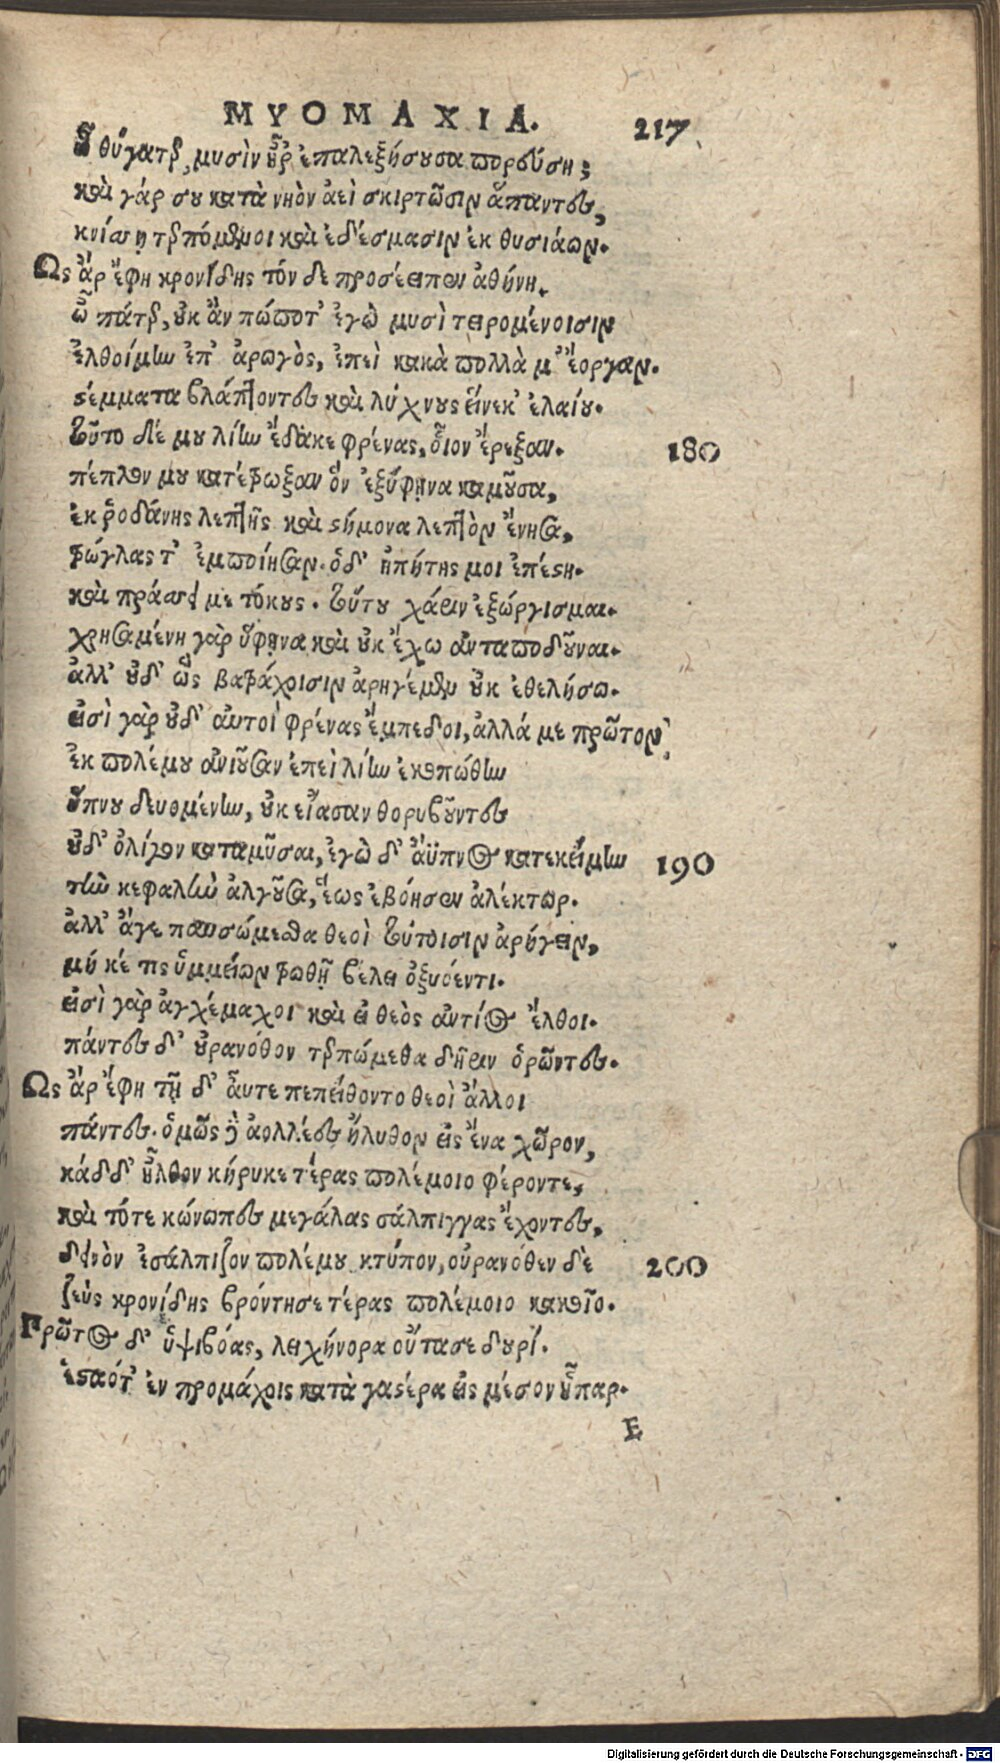 ΜΥΟΜΑΧΙΑ. 217
ὦ θύγατερ, μυσὶν ἦρ ἐπαλεξήσουσα πορεύση;
καὶ γάρ σου κατὰ νηὸν ἀεὶ σκιρτῶσιν ἅπαντες,
κνίσσῃ τερπόμενοι καὶ ἐδέσμασιν ἐκ θυσιάων.
Ως ἄρ ἔφη κρονίδης τόν δε προσέειπεν ἀθήνη.
ὦ πάτερ, οὐκ ἂν πώποτ' ἐγὼ μυσὶ τειρομένοισιν
ἐλθοίμην ἐπ' ἀρωγὸς, ἐπεὶ κακὰ πολλὰ μ' ἔοργαν.
στέμματα βλάπτοντες καὶ λύχνους εἵνεκ' ἐλαίου.
τοῦτο δέ μου λίην ἔδακε φρένας, οἷον ἔρεξαν. 180
πέπλον μου κατέτρωξαν ὃν ἐξύφηνα καμοῦσα,
ἐκ ῥοδάνης λεπτῆς καὶ στήμονα λεπτὸν ἔνησα,
τρώγλας τ' ἐμποίησαν. ὁδ' ἠπήτης μοι ἐπέστη.
καὶ πράσσει με τόκους. τούτου χάριν ἐξώργισμαι.
χρησαμένη γὰρ ὕφηνα καὶ οὐκ ἔχω ἀνταποδοῦναι.
ἀλλ' οὐδ' ὣς βατράχοισιν ἀρηγέμεν οὐκ ἐθελήσω.
εἰσὶ γὰρ οὐδ' αὐτοὶ φρένας ἔμπεδοι, ἀλλά με πρῶτον
ἐκ πολέμου ἀνιοῦσαν ἐπεὶ λίην ἐκοπώθην
ὕπνου δευομένην, οὐκ εἴασαν θορυβοῦντες
οὐδ' ὀλίγον καταμῦσαι, ἐγὼ δ' ἄϋπνος κατεκείμην 190
τὴν κεφαλὴν ἀλγοῦσα, ἕως ἐβόησεν ἀλέκτωρ.
ἀλλ' ἄγε παυσώμεσθα θεοὶ τούτοισιν ἀρήγειν,
μή κέ τις ὑμμείων τρωθῇ βέλει ὀξυόεντι.
εἰσὶ γὰρ ἀγχέμαχοι καὶ εἰ θεὸς ἀντίος ἔλθοι.
πάντες δ' οὐρανόθον τερπώμεθα δῆριν ὁρῶντες.
Ως ἄρ ἔφη τῇ δ' αὖτε πεπείθοντο θεοὶ ἄλλοι
πάντες. ὁμῶς δ' ἀολλέες ἤλυθον εἰς ἕνα χῶρον,
κάδ δ' ἦλθον κήρυκε τέρας πολέμοιο φέροντε,
καὶ τότε κώνωπες μεγάλας σάλπιγγας ἔχοντες,
δεινὸν ἐσάλπιζον πολέμου κτύπον, οὐρανόθεν δὲ 200
ζεὺς κρονίδης βρόντησε τέρας πολέμοιο κακοῖο.
Πρῶτος δ' ὑψιβόας, λειχήνορα οὔτασε δουρί.
ἑσταότ' ἐν προμάχοις κατὰ γαστέρα εἰς μέσον ἧπαρ.
E
Digitalisierung gefördert durch die Deutsche Forschungsgemeinschaft - DFG